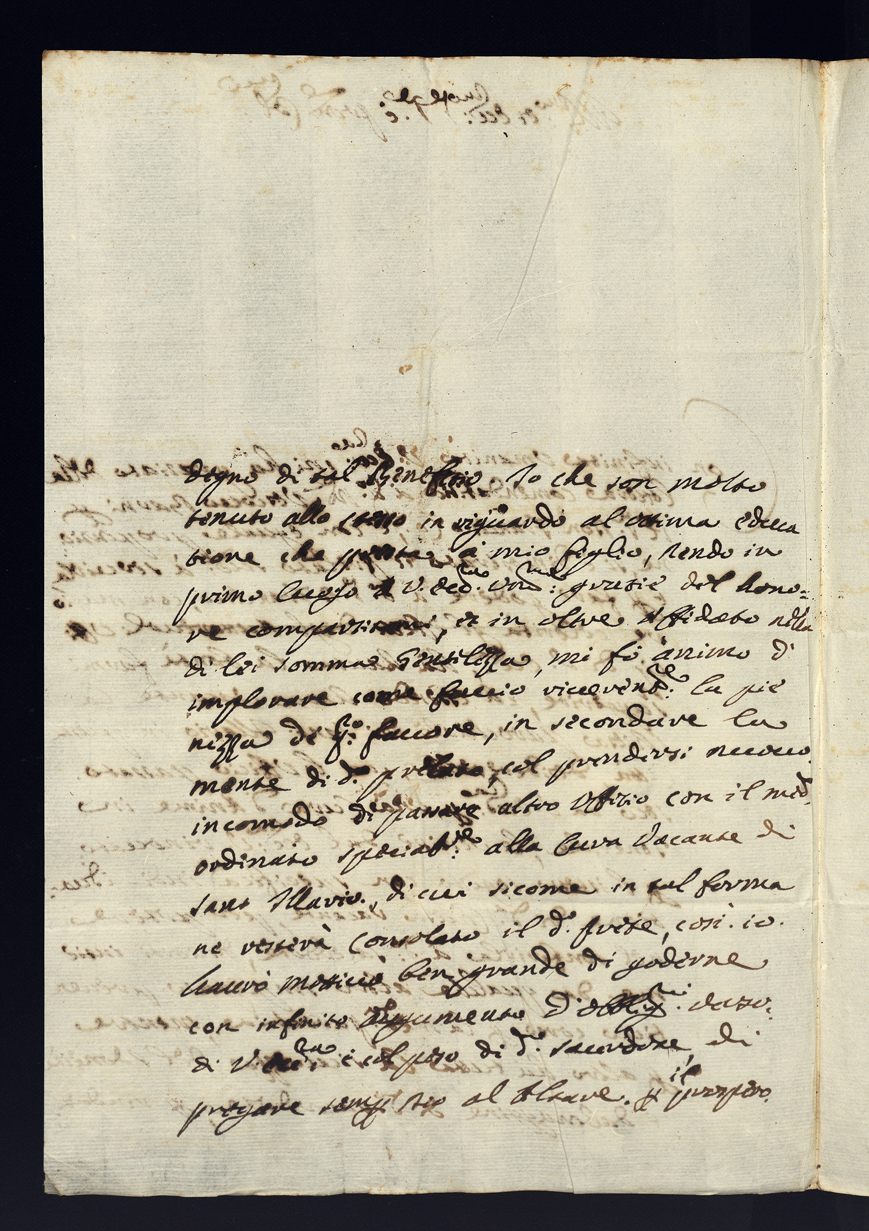 degno di tal Beneficio. Io che son molto
tenuto allo stesso in riguardo al ottima educa
tione che presta à mio figlio, rendo in
primo luogo à V. grazie del hono=
re compartitomi, et in oltre affidato nella
di lei somma Gentilezza, mi fò animo d'
implorare come faccio la pie
nezza di favore, in secondare la
mente di d.º prelato, col prendersi nuovo
incomodo di passare altro Offizio con il med.º
ordinato alla Cura Vacante di
sant Illario, di cui sicome in tal forma
ne resterà Consolato il d.º prete, così io
havrò motivo ben grande di goderne
con infinito Argumento d' verso
di V. e col peso di d.º sacerdote, di
pregare semp. Dio al Altare. p il prospero